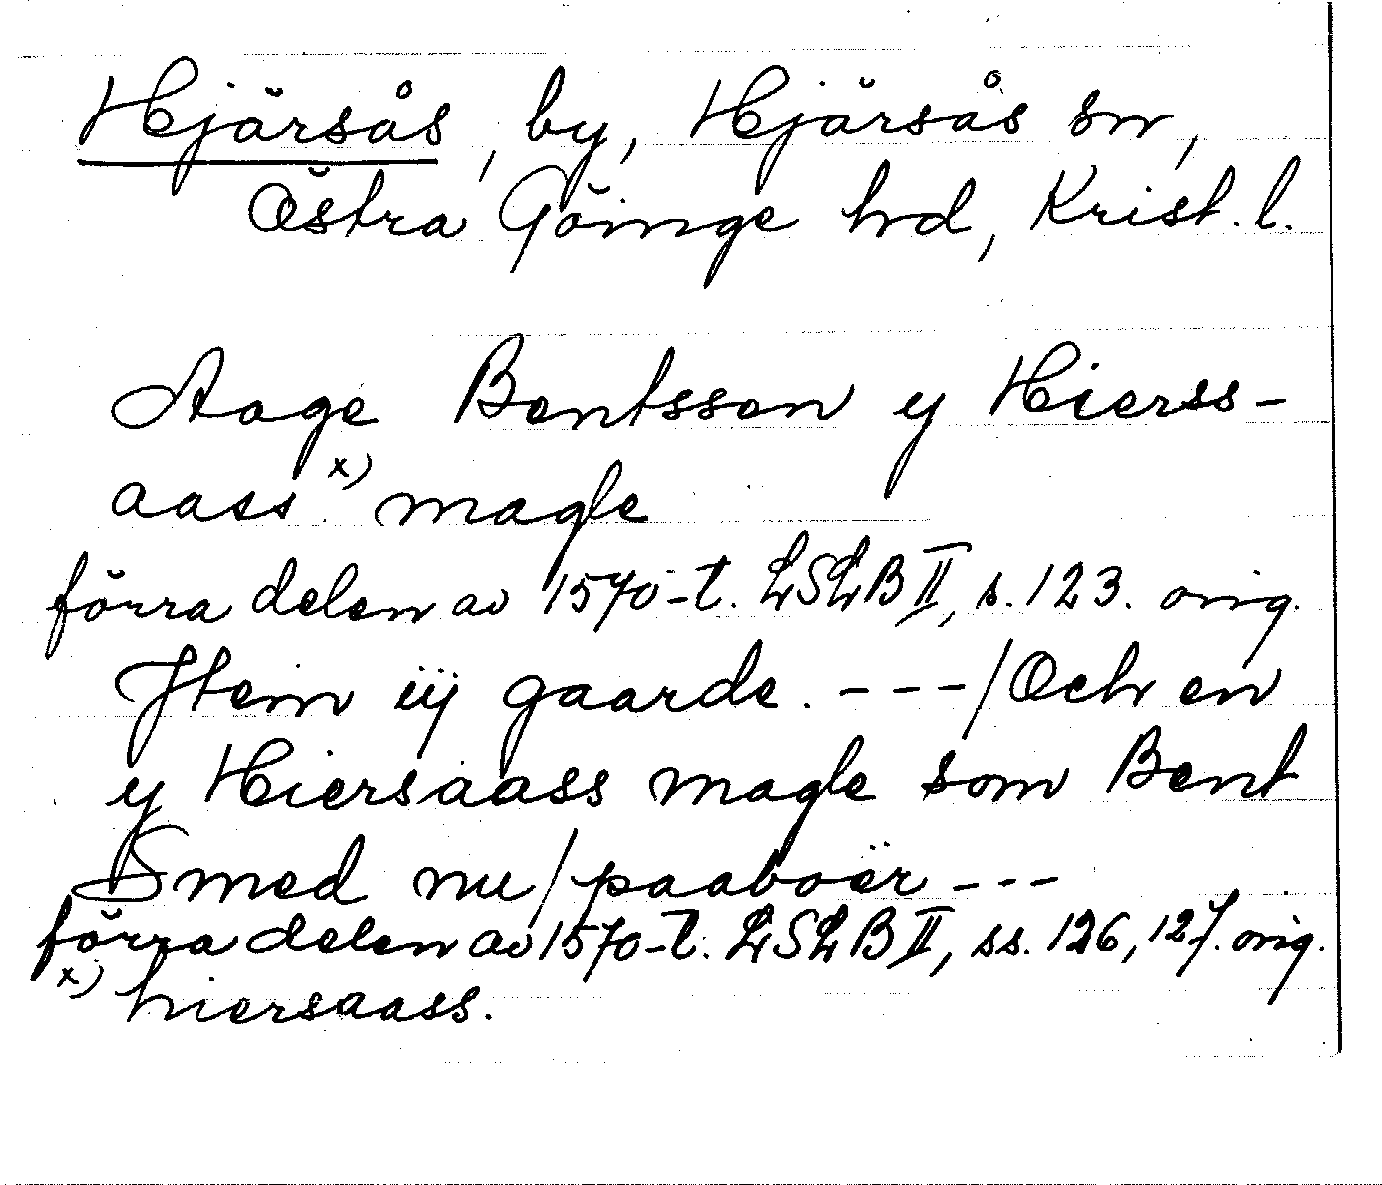 Hjärsås, by, Hjärsås sn,
Östra Göinge hd, Krist. l.
Aage Bentssen y Hierss-
aass x) magle
förra delen av 1570-t. LSLB II, s. 123. orig.
Jtem iij gaarde. ---/Och en
y Hiersaass magle som Bent
Smed nu/paaboër ---
förra delen av 1570-t. LSLB II, ss. 126, 127. orig.
x) hiersaass.